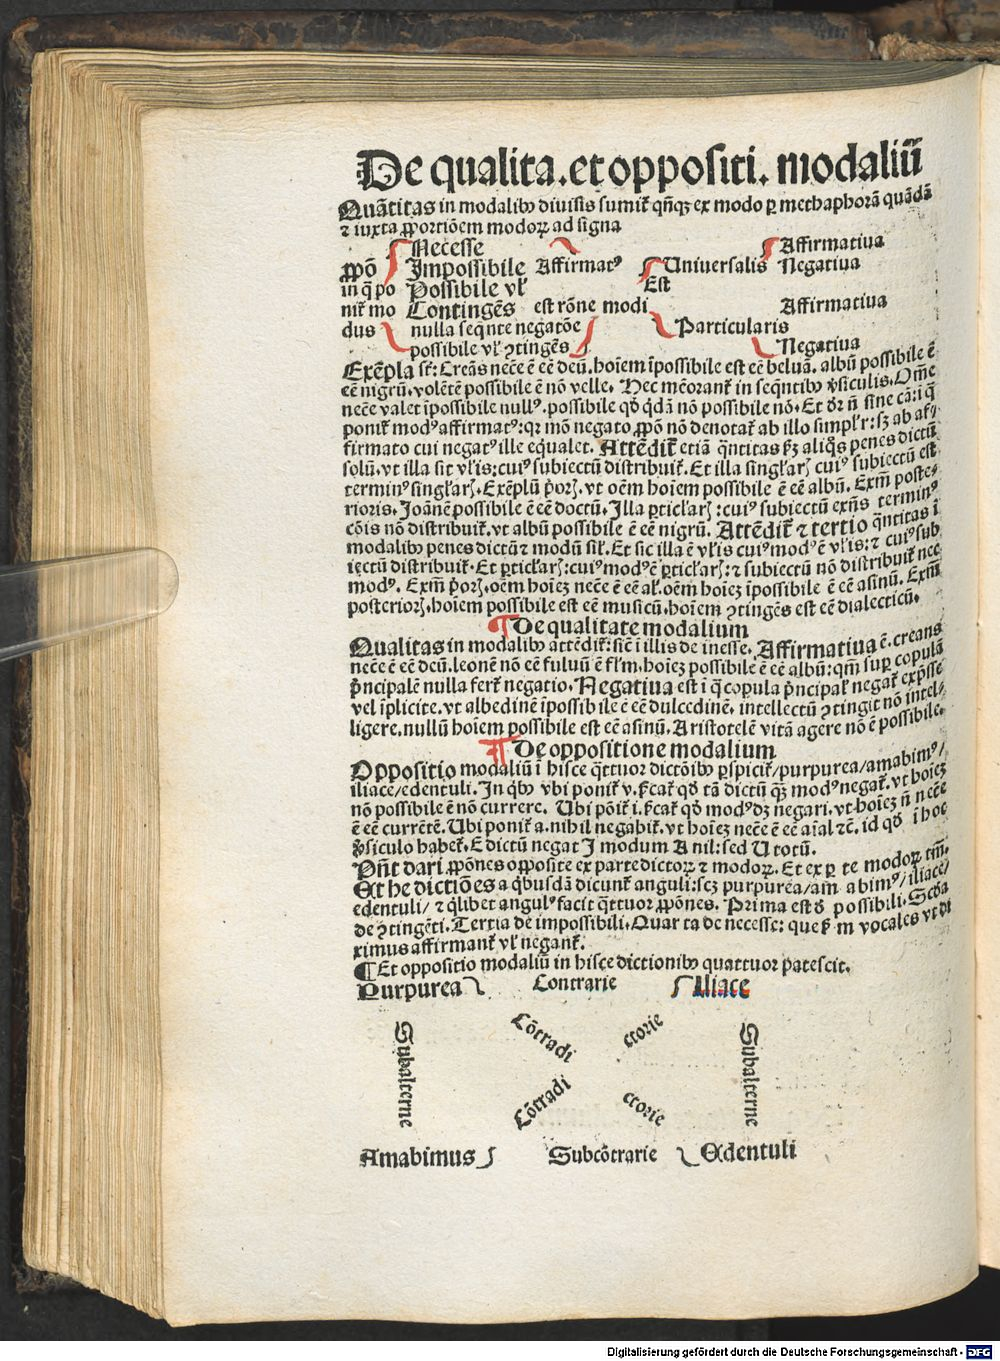 De qualita.et oppositi. modaliū
Quātitas in modalibꝫ diuisis sumit᷑ qn̄qꝫ ex modo ꝑ methaphorā quādā
⁊ iuxta ꝓportiōem modoꝝ ad signa
Necesse Affirmatiua
ꝓpō Impossibile Affirmatꝰ Uniuersalis Negatiua
in q̄ po Possibile vl' Est
nit᷑ mo Contingēs est rōne modi Affirmatiua
dus nulla seqn̄te negatōe Particularis
possibile vl' ꝯtingēs Negatiua
Exēpla st̄: Creās necē ē eē deū. hoīem īpossibile est eē beluā. albū possibile ē
eē nigrū. volētē possibile ē nō velle. Hec mēorant᷑ in seqn̄tibꝫ v̄siculis. Om̄e
necē valet īpossibile nullꝰ. possibile qd̄ qdā nō possibile nō. Et dr̄ n̄ sine cā: i q̄
ponit᷑ modꝰ affirmatꝰ: qr mō negato ꝓpō nō denotat᷑ ab illo simpl'r: sꝫ ab af/
firmato cui negatꝰ ille eq̄ualet. Attēdit᷑ etiā q̄ntitas ꝑꝫ aliq̄s penes dictū
solū. vt illa sit vl'is: cuiꝰ subiectū distribuit᷑. Et illa singl'aꝝ cuiꝰ subiectū est
terminꝰ singl'aꝝ. Exēplū p̄oꝝ. vt oēm hoīem possibile ē eē albū. Exm̄ poste⸗
rioris. Joānē possibile ē eē doctū. Illa ꝑticl'aꝝ: cuiꝰ subiectū exn̄s terminꝰ
cōis nō distribuit᷑. vt albū possibile ē eē nigrū. Attēdit᷑ ⁊ tertio q̄ntitas ī
modalibꝫ penes dictū ⁊ modū sil'. Et sic illa ē vl'is cuiꝰ modꝰ ē vl'is: ⁊ cuiꝰ sub
iectū distribuit᷑. Et ꝑticl'aꝝ: cuiꝰ modꝰ ē ꝑticl'aꝝ: ⁊ subiectū nō distribuit᷑ nec
modꝰ. Exm̄ p̄oꝝ. oēm hoīeꝫ necē ē eē al'. oēm hoīeꝫ īpossibile ē eē asinū. Exm̄
posterioꝝ. hoīem possibile est eē musicū. hoīem ꝯtingēs est eē dialecticū.
¶ De qualitate modalium
Qualitas in modalibꝫ attēdit᷑: sic̄ ī illis de inesse. Affirmatiua ē. creans
necē ē eē deū. leonē nō eē fuluū ē fl'm. hoīeꝫ possibile ē eē albū: qm̄ suꝑ copulā
p̄ncipalē nulla fert᷑ negatio. Negatiua est ī q̄ copula p̄ncipal' negat᷑ exp̄sse
vel īplicite. vt albedinē īpossibile ē eē dulcedinē. intellectū ꝯtingit nō intel⸗
ligere. nullū hoīem possibile est eē asinū. Aristotelē vitā agere nō ē possibile.
¶ De oppositione modalium
Oppositio modaliū ī hisce q̄ttuor dictōibꝫ ꝑspicit᷑/purpurea/amabimꝰ/
iliace/edentuli. In q̄bꝫ vbi ponit᷑ v. ꝑcat᷑ qd̄ tā dictū qꝫ modꝰ negat᷑. vt hoīeꝫ
nō possibile ē nō currere. Ubi pōit᷑ i. ꝑcat᷑ qd̄ modꝰ dꝫ negari. vt hoīeꝫ n̄ necē
ē eē currētē. Ubi ponit᷑ a. nihil negabit᷑. vt hoīeꝫ necē ē eē aīal ⁊c̄. id qd̄ ī hoc
v̄siculo habet᷑. E dictū negat J modum A nil: sed U totū.
Pn̄t dari ꝓpōnes opposite ex parte dictoꝝ ⁊ modoꝝ. Et ex ꝑ te modoꝝ tm̄.
Et he dictiōes a q̄busdā dicunt᷑ anguli: scꝫ purpurea/am abimꝰ/iliace/
edentuli/ ⁊ q̄libet angulꝰ facit q̄ttuor ꝓpōnes. Prima est d̄ possibili. Scd̄a
de ꝯtingēti. Tertia de impossibili. Quar ta de necesse: que ꝑ m vocales vt di
ximus affirmant᷑ vl' negant᷑.
¶ Et oppositio modaliū in hisce dictionibꝫ quattuor patescit.
Purpurea Contrarie Iliace
Cōtradi ctorie
Subalterne Subalterne
Cōtradi ctorie
Amabimus Subcōtrarie Edentuli
Digitalisierung gefördert durch die Deutsche Forschungsgemeinschaft - DFG